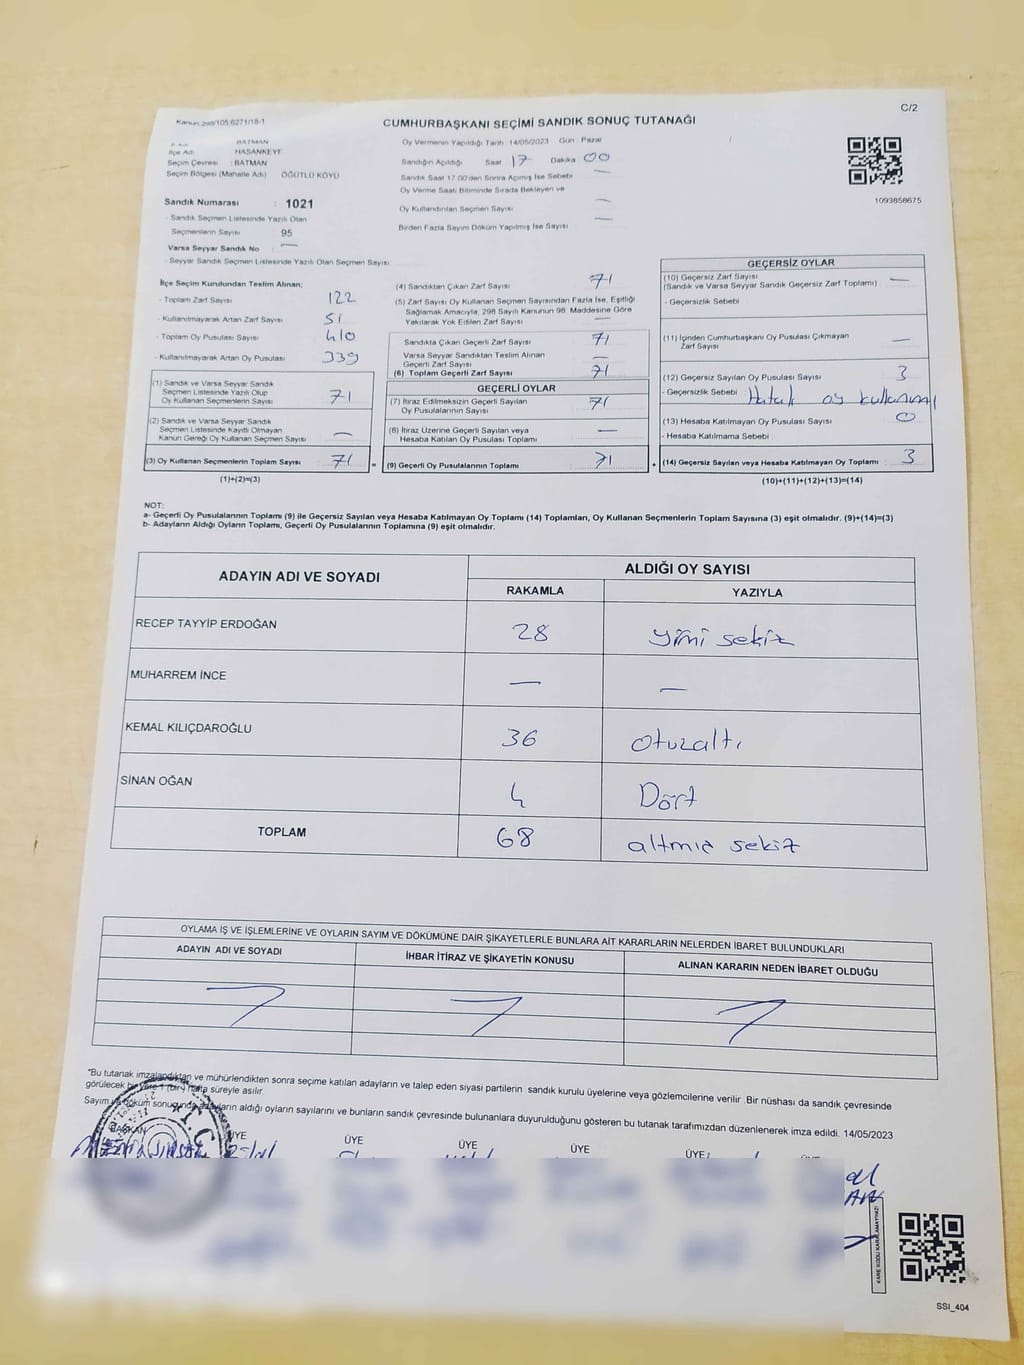 C/2
Kanun: 298/105,6271/18-1
CUMHURBAŞKANI SEÇİMİ SANDIK SONUÇ TUTANAĞI
İl Adı : BATMAN
İlçe Adı : HASANKEYF
Seçim Çevresi : BATMAN
Seçim Bölgesi (Mahalle Adı) : ÖĞÜTLÜ KÖYÜ
Sandık Numarası : 1021
- Sandık Seçmen Listesinde Yazılı Olan
Seçmenlerin Sayısı 95
Varsa Seyyar Sandık No : —
- Seyyar Sandık Seçmen Listesinde Yazılı Olan Seçmen Sayısı
Oy Vermenin Yapıldığı Tarih 14/05/2023 Gün Pazar
Sandığın Açıldığı Saat 17 Dakika 00
Sandık Saat 17.00'den Sonra Açılmış İse Sebebi —
Oy Verme Saati Bitiminde Sırada Bekleyen ve
Oy Kullandırılan Seçmen Sayısı —
Birden Fazla Sayım Döküm Yapılmış İse Sayısı —
1093858675
İlçe Seçim Kurulundan Teslim Alınan;
- Toplam Zarf Sayısı 122
- Kullanılmayarak Artan Zarf Sayısı 51
- Toplam Oy Pusulası Sayısı 410
- Kullanılmayarak Artan Oy Pusulası 339
(1) Sandık ve Varsa Seyyar Sandık
Seçmen Listesinde Yazılı Olup
Oy Kullanan Seçmenlerin Sayısı 71
(2) Sandık ve Varsa Seyyar Sandık
Seçmen Listesinde Kayıtlı Olmayan
Kanun Gereği Oy Kullanan Seçmen Sayısı —
(3) Oy Kullanan Seçmenlerin Toplam Sayısı 71 =
(1)+(2)=(3)
(4) Sandıktan Çıkan Zarf Sayısı 71
(5) Zarf Sayısı Oy Kullanan Seçmen Sayısından Fazla İse, Eşitliği
Sağlamak Amacıyla, 298 Sayılı Kanunun 98. Maddesine Göre
Yakılarak Yok Edilen Zarf Sayısı —
Sandıkta Çıkan Geçerli Zarf Sayısı 71
Varsa Seyyar Sandıktan Teslim Alınan
Geçerli Zarf Sayısı —
(6) Toplam Geçerli Zarf Sayısı 71
GEÇERLİ OYLAR
(7) İtiraz Edilmeksizin Geçerli Sayılan
Oy Pusulalarının Sayısı 71
(8) İtiraz Üzerine Geçerli Sayılan veya
Hesaba Katılan Oy Pusulası Toplamı —
(9) Geçerli Oy Pusulalarının Toplamı 71 +
GEÇERSİZ OYLAR
(10) Geçersiz Zarf Sayısı —
(Sandık ve Varsa Seyyar Sandık Geçersiz Zarf Toplamı)
- Geçersizlik Sebebi
(11) İçinden Cumhurbaşkanı Oy Pusulası Çıkmayan
Zarf Sayısı —
(12) Geçersiz Sayılan Oy Pusulası Sayısı 3
- Geçersizlik Sebebi Hatalı oy kullanımı
(13) Hesaba Katılmayan Oy Pusulası Sayısı 0
- Hesaba Katılmama Sebebi
(14) Geçersiz Sayılan veya Hesaba Katılmayan Oy Toplamı 3
(10)+(11)+(12)+(13)=(14)
NOT:
a- Geçerli Oy Pusulalarının Toplamı (9) ile Geçersiz Sayılan veya Hesaba Katılmayan Oy Toplamı (14) Toplamları, Oy Kullanan Seçmenlerin Toplam Sayısına (3) eşit olmalıdır. (9)+(14)=(3)
b- Adayların Aldığı Oyların Toplamı, Geçerli Oy Pusulalarının Toplamına (9) eşit olmalıdır.
ADAYIN ADI VE SOYADI ALDIĞI OY SAYISI
RAKAMLA YAZIYLA
RECEP TAYYİP ERDOĞAN 28 yirmi sekiz
MUHARREM İNCE — —
KEMAL KILIÇDAROĞLU 36 otuzaltı
SİNAN OĞAN 4 Dört
TOPLAM 68 altmış sekiz
OYLAMA İŞ VE İŞLEMLERİNE VE OYLARIN SAYIM VE DÖKÜMÜNE DAİR ŞİKAYETLERLE BUNLARA AİT KARARLARIN NELERDEN İBARET BULUNDUKLARI
ADAYIN ADI VE SOYADI İHBAR İTİRAZ VE ŞİKAYETİN KONUSU ALINAN KARARIN NEDEN İBARET OLDUĞU
"Bu tutanak imzalandıktan ve mühürlendikten sonra seçime katılan adayların ve talep eden siyasi partilerin sandık kurulu üyelerine veya gözlemcilerine verilir. Bir nüshası da sandık çevresinde
görülecek bir yere 1 (bir) hafta süreyle asılır.
Sayım ve döküm sonucunda adayların aldığı oyların sayılarını ve bunların sandık çevresinde bulunanlara duyurulduğunu gösteren bu tutanak tarafımızdan düzenlenerek imza edildi. 14/05/2023
BAŞKAN ÜYE ÜYE ÜYE ÜYE ÜYE
T.C.
KARE KODU KARALAMAYINIZ!
SSI_404